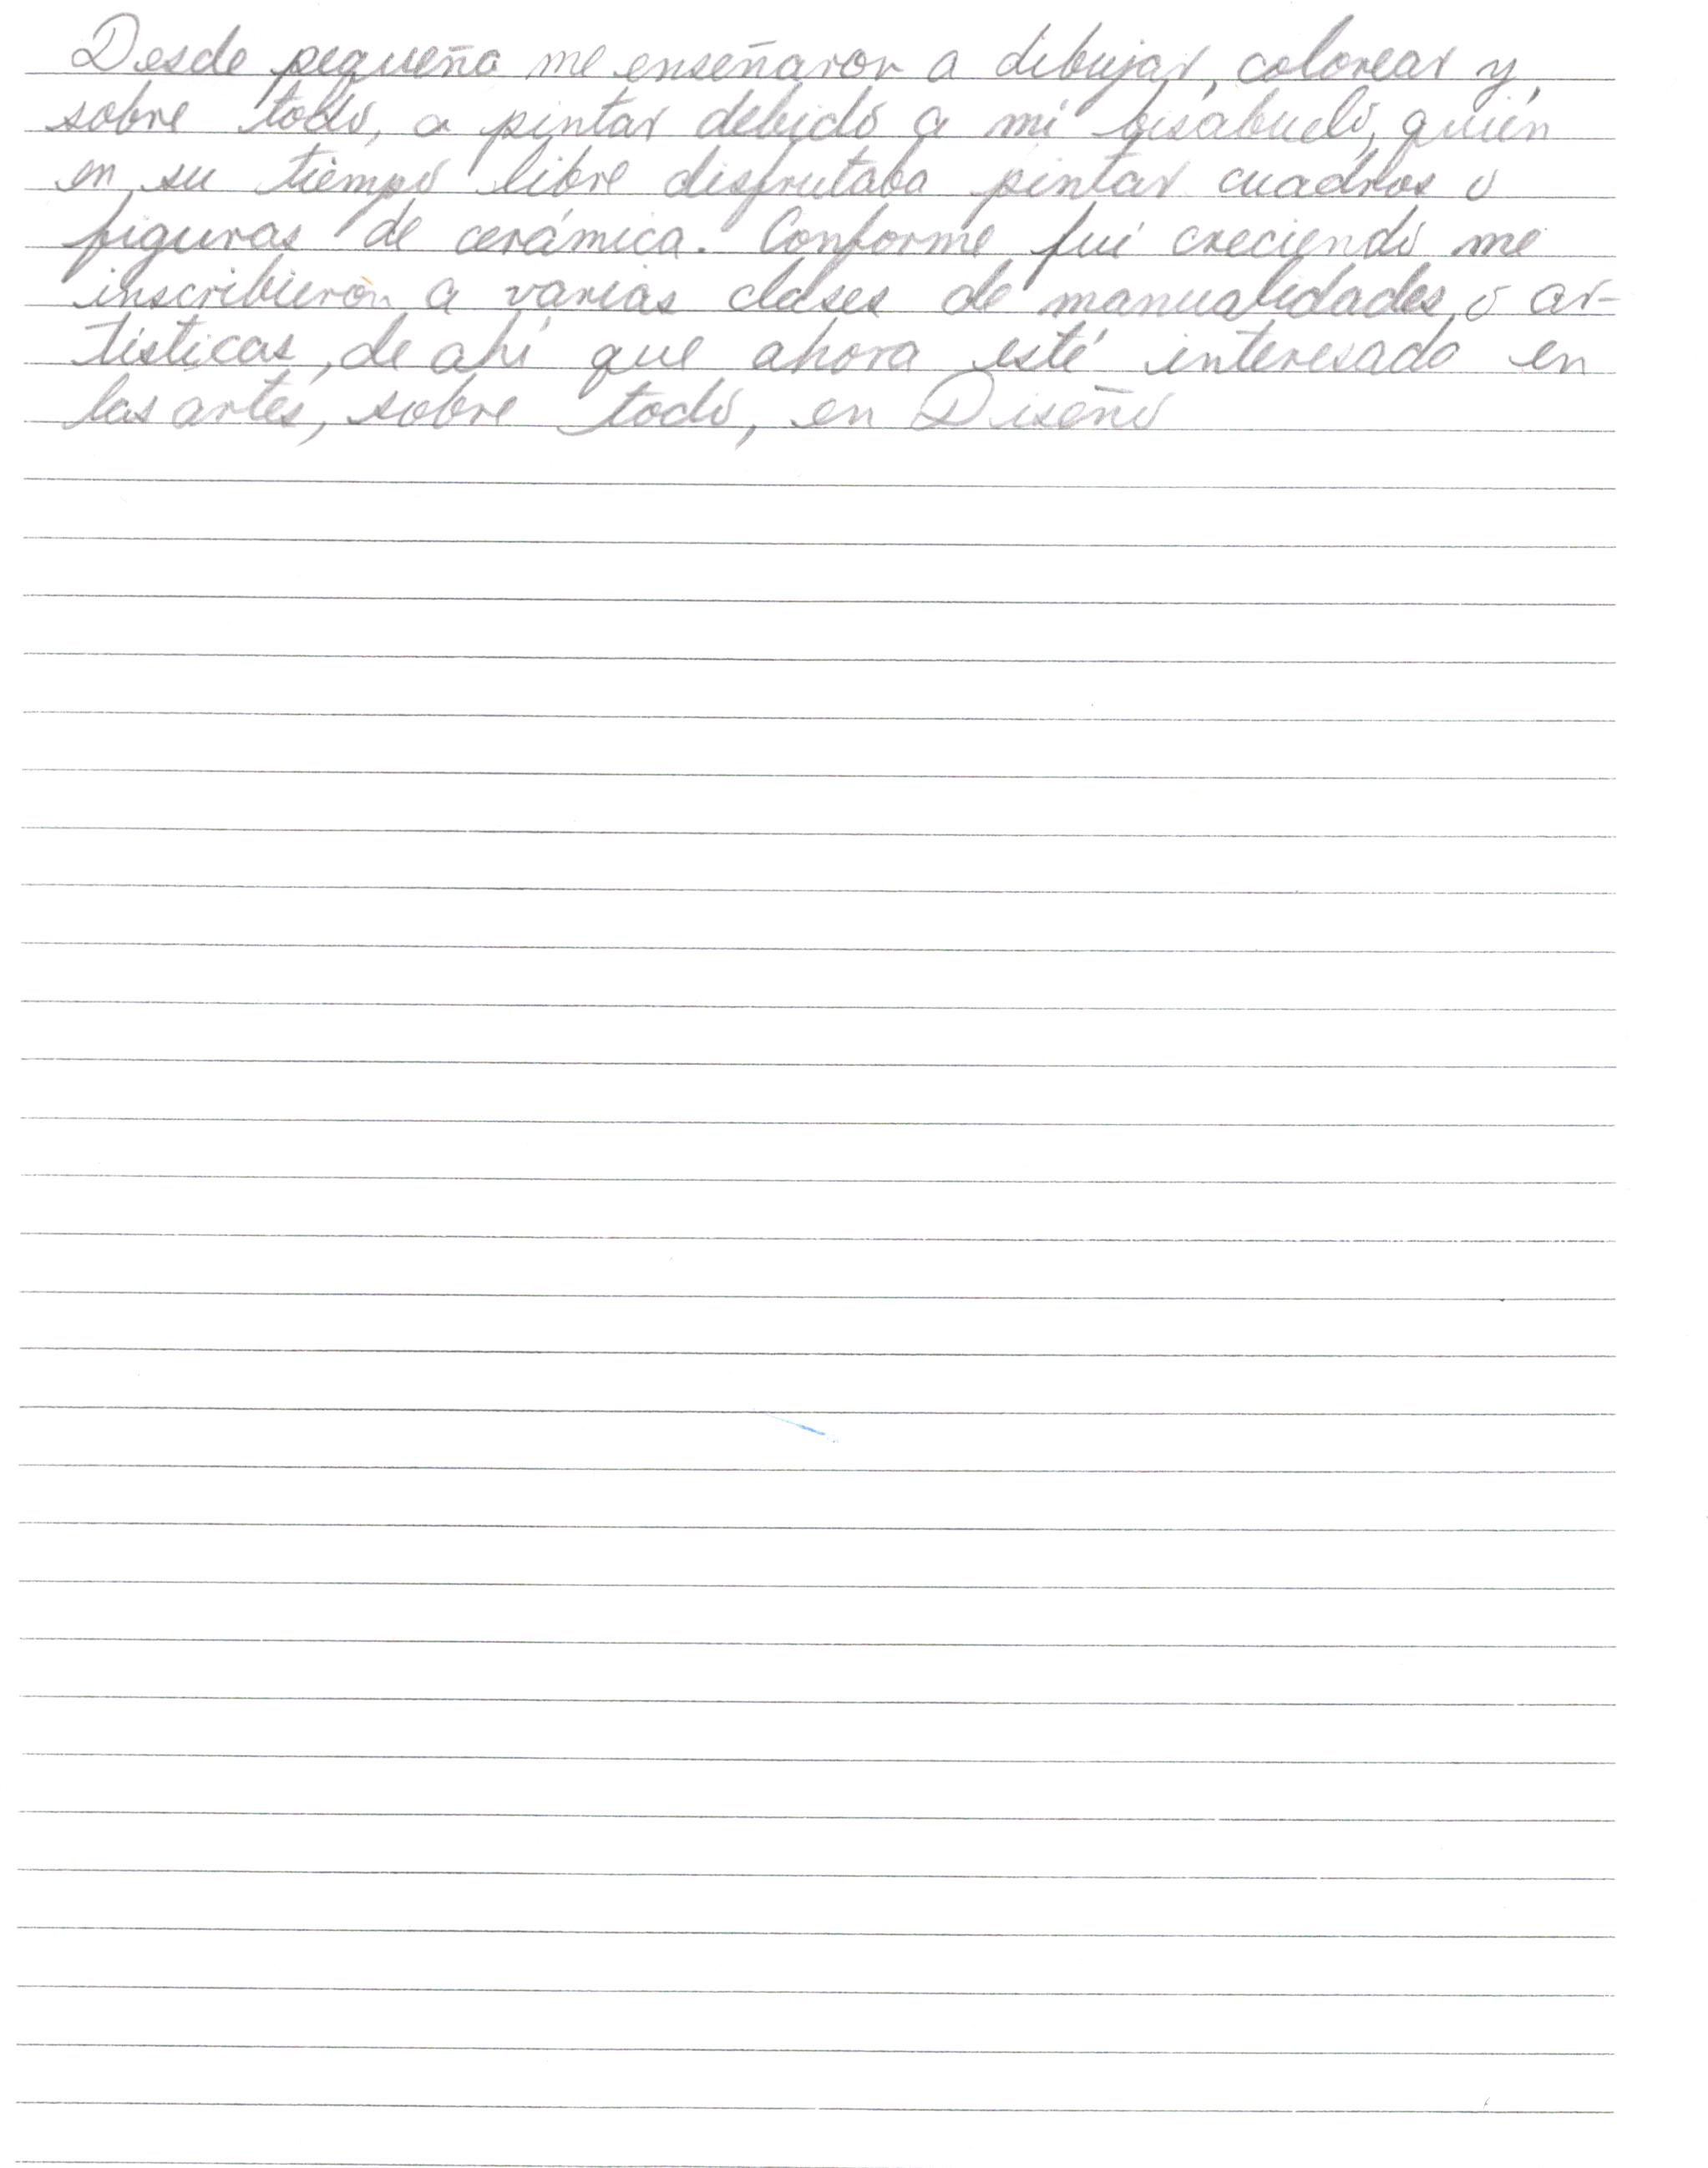 Desde pequeña me enseñaron a dibujar, colorear y,
sobre todo, a pintar debido a mi bisabuelo, quien
en su tiempo libre disfrutaba pintar cuadros o
figuras de cerámica. Conforme fui creciendo me
inscribieron a varias clases de manualidades o ar-
tísticas, de ahí que ahora esté interesada en
las artes, sobre todo, en Diseño